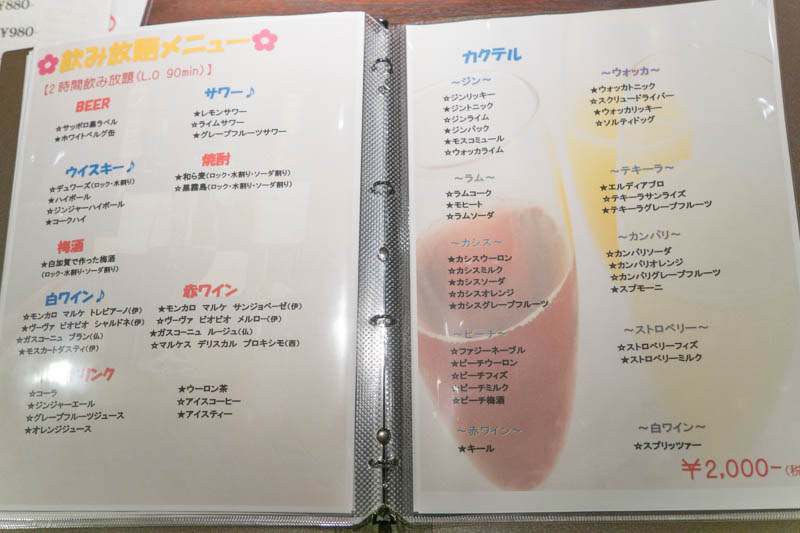 ¥880-
¥980-
飲み放題メニュー
【2時間飲み放題(L.O 90min)】
BEER
☆サッポロ黒ラベル
★ホワイトベルグ缶
サワー♪
★レモンサワー
☆ライムサワー
★グレープフルーツサワー
ウイスキー♪
☆デュワーズ(ロック・水割り)
★ハイボール
☆ジンジャーハイボール
★コークハイ
焼酎
★和ら麦(ロック・水割り・ソーダ割り)
☆黒霧島(ロック・水割り・ソーダ割り)
梅酒
★白加賀で作った梅酒
(ロック・水割り・ソーダ割り)
白ワイン♪
☆モンカロ マルケ トレビアーノ(伊)
★ヴーヴァ ピオピオ シャルドネ(伊)
☆ガスコーニュ ブラン(仏)
★モスカートダスティ(伊)
赤ワイン
★モンカロ マルケ サンジョベーゼ(伊)
☆ヴーヴァ ピオピオ メルロー(伊)
★ガスコーニュ ルージュ(仏)
☆マルケス デリスカル プロキシモ(西)
リンク
☆コーラ
☆ジンジャーエール
☆グレープフルーツジュース
★オレンジジュース
★ウーロン茶
☆アイスコーヒー
★アイスティー
カクテル
～ジン～
☆ジンリッキー
★ジントニック
☆ジンライム
★ジンバック
★モスコミュール
☆ウォッカライム
～ウォッカ～
★ウォッカトニック
☆スクリュードライバー
★ウォッカリッキー
☆ソルティドッグ
～ラム～
☆ラムコーク
★モヒート
☆ラムソーダ
～テキーラ～
★エルディアブロ
☆テキーラサンライズ
★テキーラグレープフルーツ
～カシス～
★カシスウーロン
☆カシスミルク
★カシスソーダ
☆カシスオレンジ
★カシスグレープフルーツ
～カンパリ～
☆カンパリソーダ
★カンパリオレンジ
☆カンパリグレープフルーツ
★スプモーニ
～ピーチ～
☆ファジーネーブル
★ピーチウーロン
☆ピーチフィズ
★ピーチミルク
☆ピーチ梅酒
～ストロベリー～
☆ストロベリーフィズ
★ストロベリーミルク
～赤ワイン～
★キール
～白ワイン～
☆スプリッツァー
￥2,000-(税